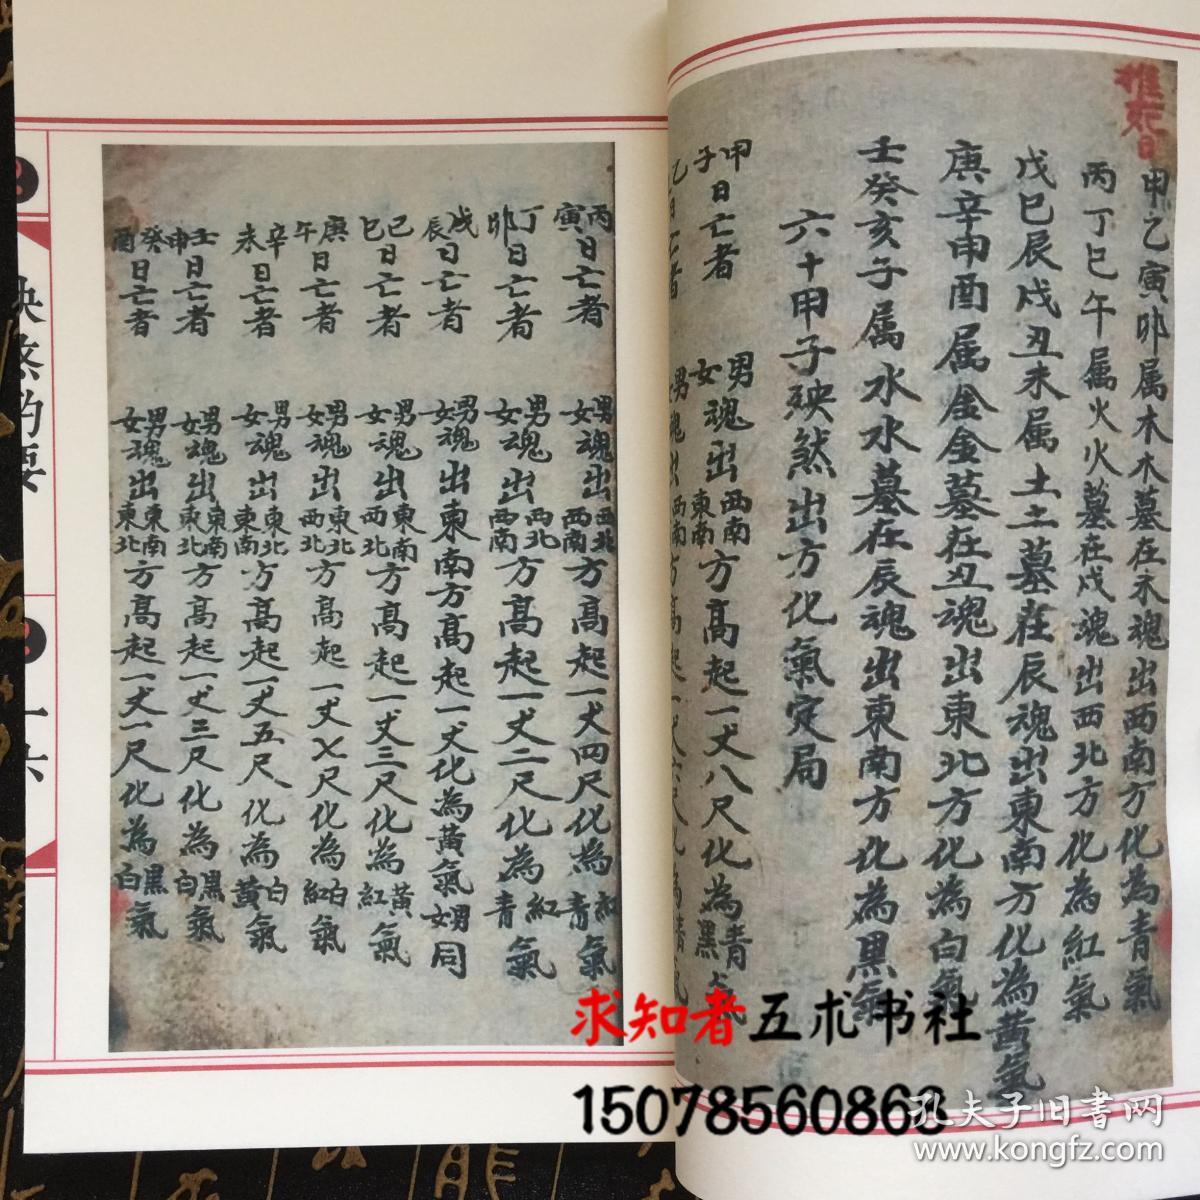 推死日
甲乙寅卯属木木墓在未魂出西南方化為青氣
丙丁巳午属火火墓在戌魂出西北方化為紅氣
戊己辰戌丑未属土土墓在辰魂出東南方化為黃氣
庚辛申酉属金金墓在丑魂出東北方化為白氣
壬癸亥子属水水墓在辰魂出東南方化為黑氣
六十甲子殃煞出方化氣定局
甲子日亡者 男女魂出西南東南方高起一丈八尺化為青黑氣
男女魂出西南方高起一丈六尺化為
丙寅日亡者 男女魂出西北西南方高起一丈四尺化為紅青氣
丁卯日亡者 男女魂出西北西南方高起一丈二尺化為紅青氣
戊辰日亡者 男女魂出東南方高起一丈化為黃氣男女同
己巳日亡者 男女魂出東南西北方高起一丈三尺化為黃紅氣
庚午日亡者 男女魂出東北西北方高起一丈七尺化為白紅氣
辛未日亡者 男女魂出東北東南方高起一丈五尺化為白黃氣
壬申日亡者 男女魂出東南東北方高起一丈三尺化為黑白氣
癸酉日亡者 男女魂出東南東北方高起一丈一尺化為黑白氣
求知者五术书社
15078560863
孔夫子旧书网
www.kongfz.com